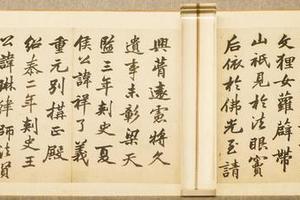 文狸女蘿薜帶
山祇見於法眼竇
后依於佛光至請
興遠將久
遺事未彰梁天
監三年刺史夏
侯公諱祥了義
重元別搆正殿
紹泰二年刺史王
公諱琳律師法賢